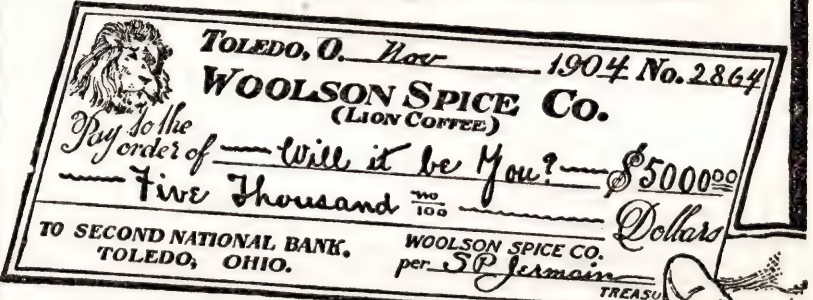 TOLEDO, O. Nov 1904 No. 2864
WOOLSON SPICE Co.
(LION COFFEE)
Pay to the order of Will it be You? $5000 00
Five Thousand no/100 Dollars
TO SECOND NATIONAL BANK.
TOLEDO, OHIO.
WOOLSON SPICE CO.
per S P Jermain
TREASU